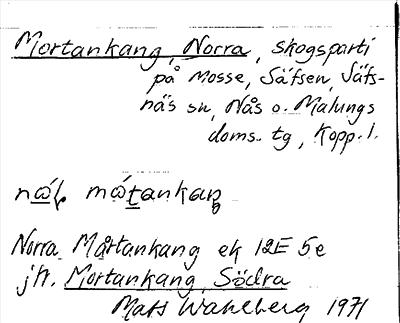 Mortankang, Norra, skogsparti
på Mosse, Säfsen, Säfs-
näs sn, Nås o. Malungs
doms. tg, Kopp. l.
Norra Mårtankang ek 12E 5e
jfr. Mortankang, Södra
Mats Wahlberg 1971